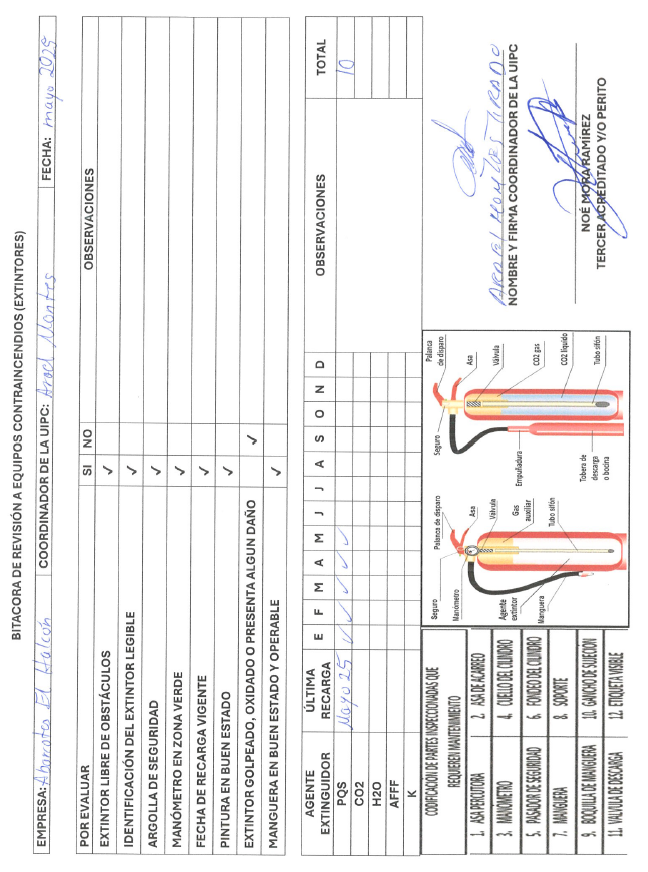 BITACORA DE REVISIÓN A EQUIPOS CONTRAINCENDIOS (EXTINTORES)
EMPRESA: Abarrotes El Halcón COORDINADOR DE LA UIPC: Arael Montes FECHA: mayo 2025
POR EVALUAR SI NO OBSERVACIONES
EXTINTOR LIBRE DE OBSTÁCULOS ✓
IDENTIFICACIÓN DEL EXTINTOR LEGIBLE ✓
ARGOLLA DE SEGURIDAD ✓
MANÓMETRO EN ZONA VERDE ✓
FECHA DE RECARGA VIGENTE ✓
PINTURA EN BUEN ESTADO ✓
EXTINTOR GOLPEADO, OXIDADO O PRESENTA ALGUN DAÑO ✓
MANGUERA EN BUEN ESTADO Y OPERABLE ✓
AGENTE EXTINGUIDOR ÚLTIMA RECARGA E F M A M J J A S O N D OBSERVACIONES TOTAL
PQS Mayo 25 ✓ ✓ ✓ ✓ ✓ 10
CO2
H2O
AFFF
K
CODIFICACION DE PARTES INSPECCIONADAS QUE
REQUIEREN MANTENIMIENTO
1. ASA PERCUTORA 2. ASA DE ACARREO
3. MANOMETRO 4. CUELLO DEL CILINDRO
5. PASADOR DE SEGURIDAD 6. FONDEO DEL CILINDRO
7. MANGUERA 8. SOPORTE
9. BOQUILLA DE MANGUERA 10. GANCHO DE SUJECION
11. VALVULA DE DESCARGA 12. ETIQUETA VISIBLE
Palanca de disparo
Seguro
Asa
Manómetro
Válvula
Gas auxiliar
Agente extintor
Tubo sifón
Manguera
Palanca de disparo
Seguro
Asa
Válvula
CO2 gas
Empuñadura
CO2 líquido
Tubo sifón
Tobera de descarga o bocina
NOMBRE Y FIRMA COORDINADOR DE LA UIPC
NOÉ MORA RAMÍREZ
TERCER ACREDITADO Y/O PERITO